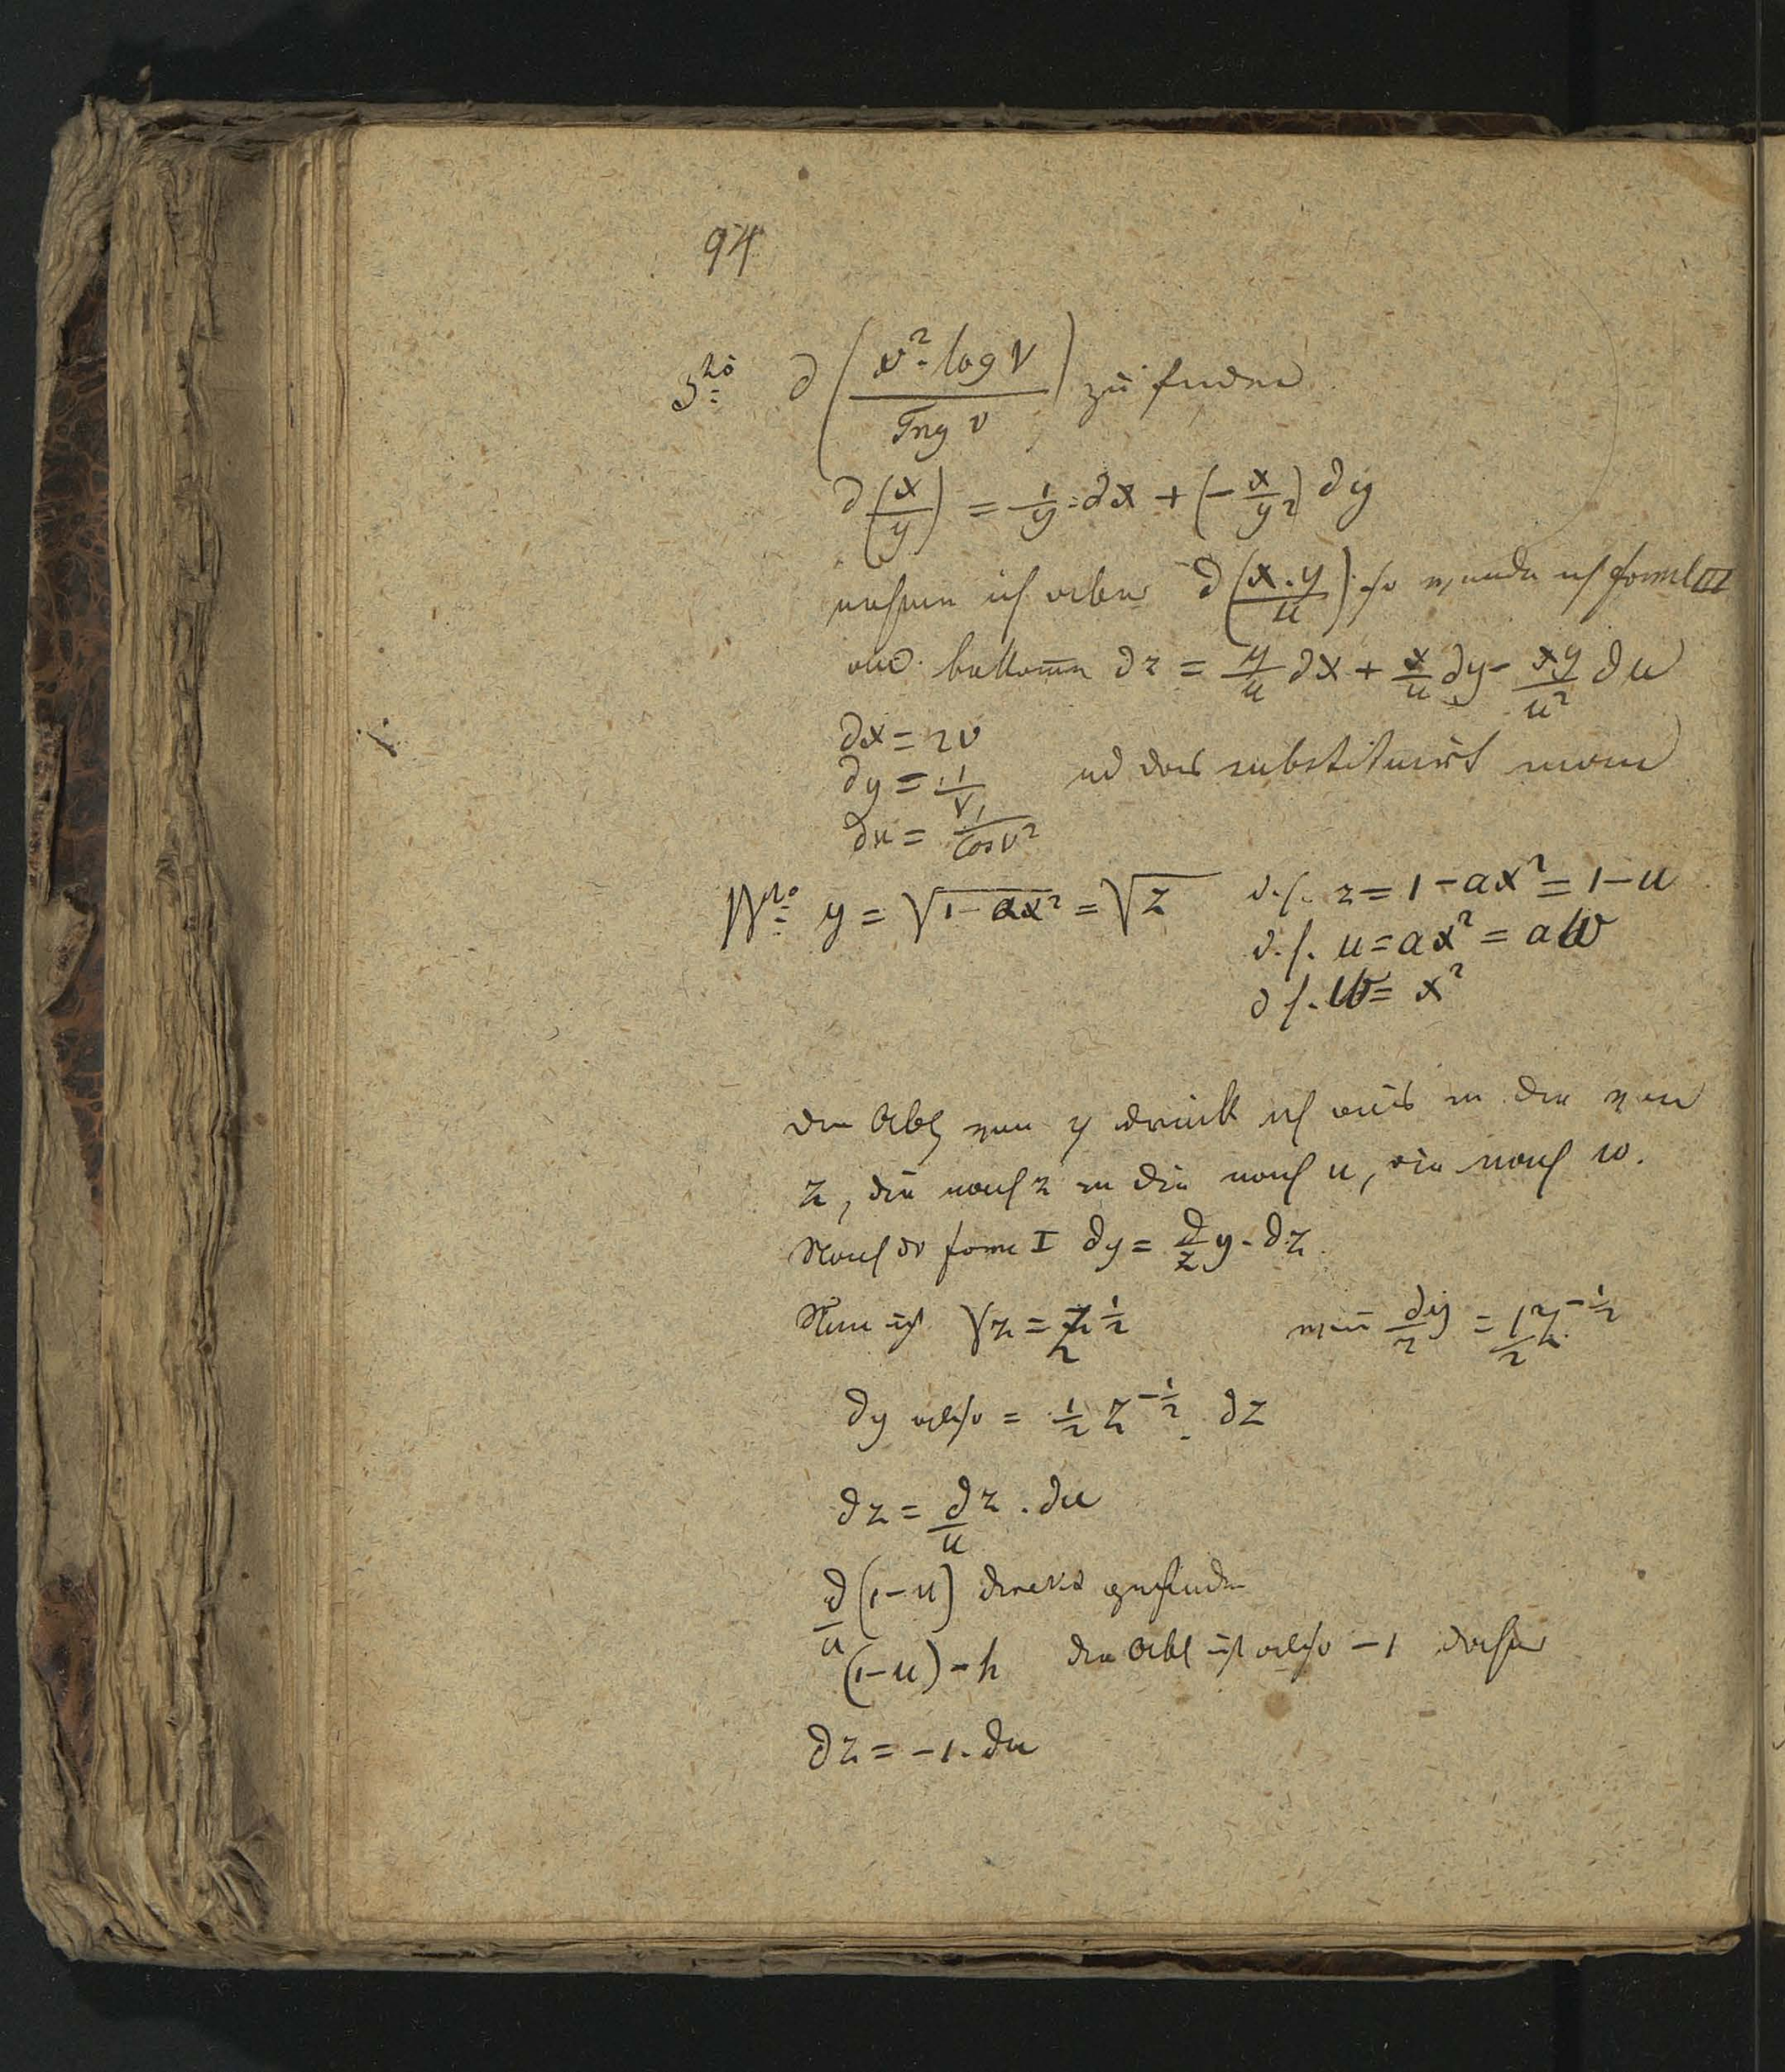 94
3tio ∂(v²·log v / Tng v) zu finden
∂(x/y) = 1/y·∂x + (−x/y²) ∂y
nehmen ich aber ∂(x.y/u) so wende ich formel III
und bekomm ∂z = y/u ∂x + x/u ∂y − xy/u² ∂u
∂x = 2v
∂y = 1/v und das substituirt man
∂u = 1/Cos v²
4to y = √(1−ax²) = √z d.h. z = 1−ax² = 1−u
d.h. u = ax² = aw
d.h. w = x²
Die Abl von y drück ich aus in die von
z, die nach z in die nach u, die nach w.
Nach der form I ∂y = ∂/z y·∂z
Nun ist √z = z^½ ∂y/z = ½ z^−½
∂y also = ½ z^−½ . ∂z
∂z = ∂/u z . ∂u
∂/u (1−u) direct gefunden
(1−u)−h die Abl ist also −1 daher
∂z = −1.∂u